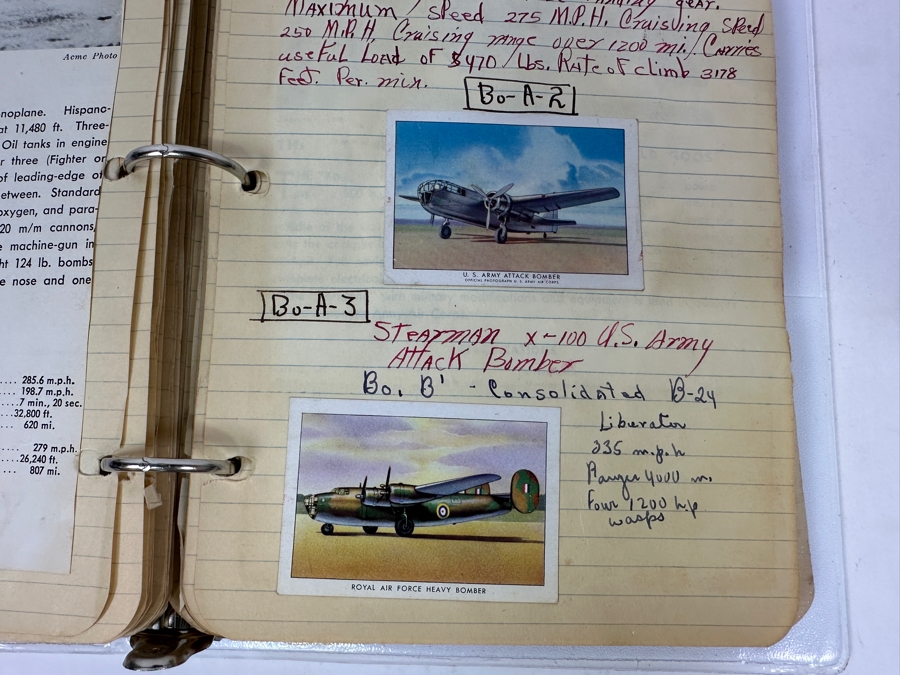 Acme Photo
noplane. Hispano-
at 11,480 ft. Three-
Oil tanks in engine
r three (Fighter or
of leading-edge of
etween. Standard
oxygen, and para-
20 m/m cannons,
e machine-gun in
ht 124 lb. bombs
e nose and one
.... 285.6 m.p.h.
.... 198.7 m.p.h.
....7 min., 20 sec.
....32,800 ft.
.... 620 mi.
.... 279 m.p.h.
....26,240 ft.
.... 807 mi.
gear.
Maximum / speed 275 M.P.H. Cruisving speed
250 M.P.H. Cruising range over 1200 mi./ Carries
useful Load of $470 / Lbs. Rate of climb 3178
Feet. Per. min.
Bo-A-2
U. S. ARMY ATTACK BOMBER
OFFICIAL PHOTOGRAPH U. S. ARMY AIR CORPS
Bo-A-3
Stearman x-100 U.S. Army
Attack Bomber
Bo. B' - Consolidated B-24
Liberator
335 m.p.h
Range 4000 m.
Four 1200 h.p
wasps
ROYAL AIR FORCE HEAVY BOMBER